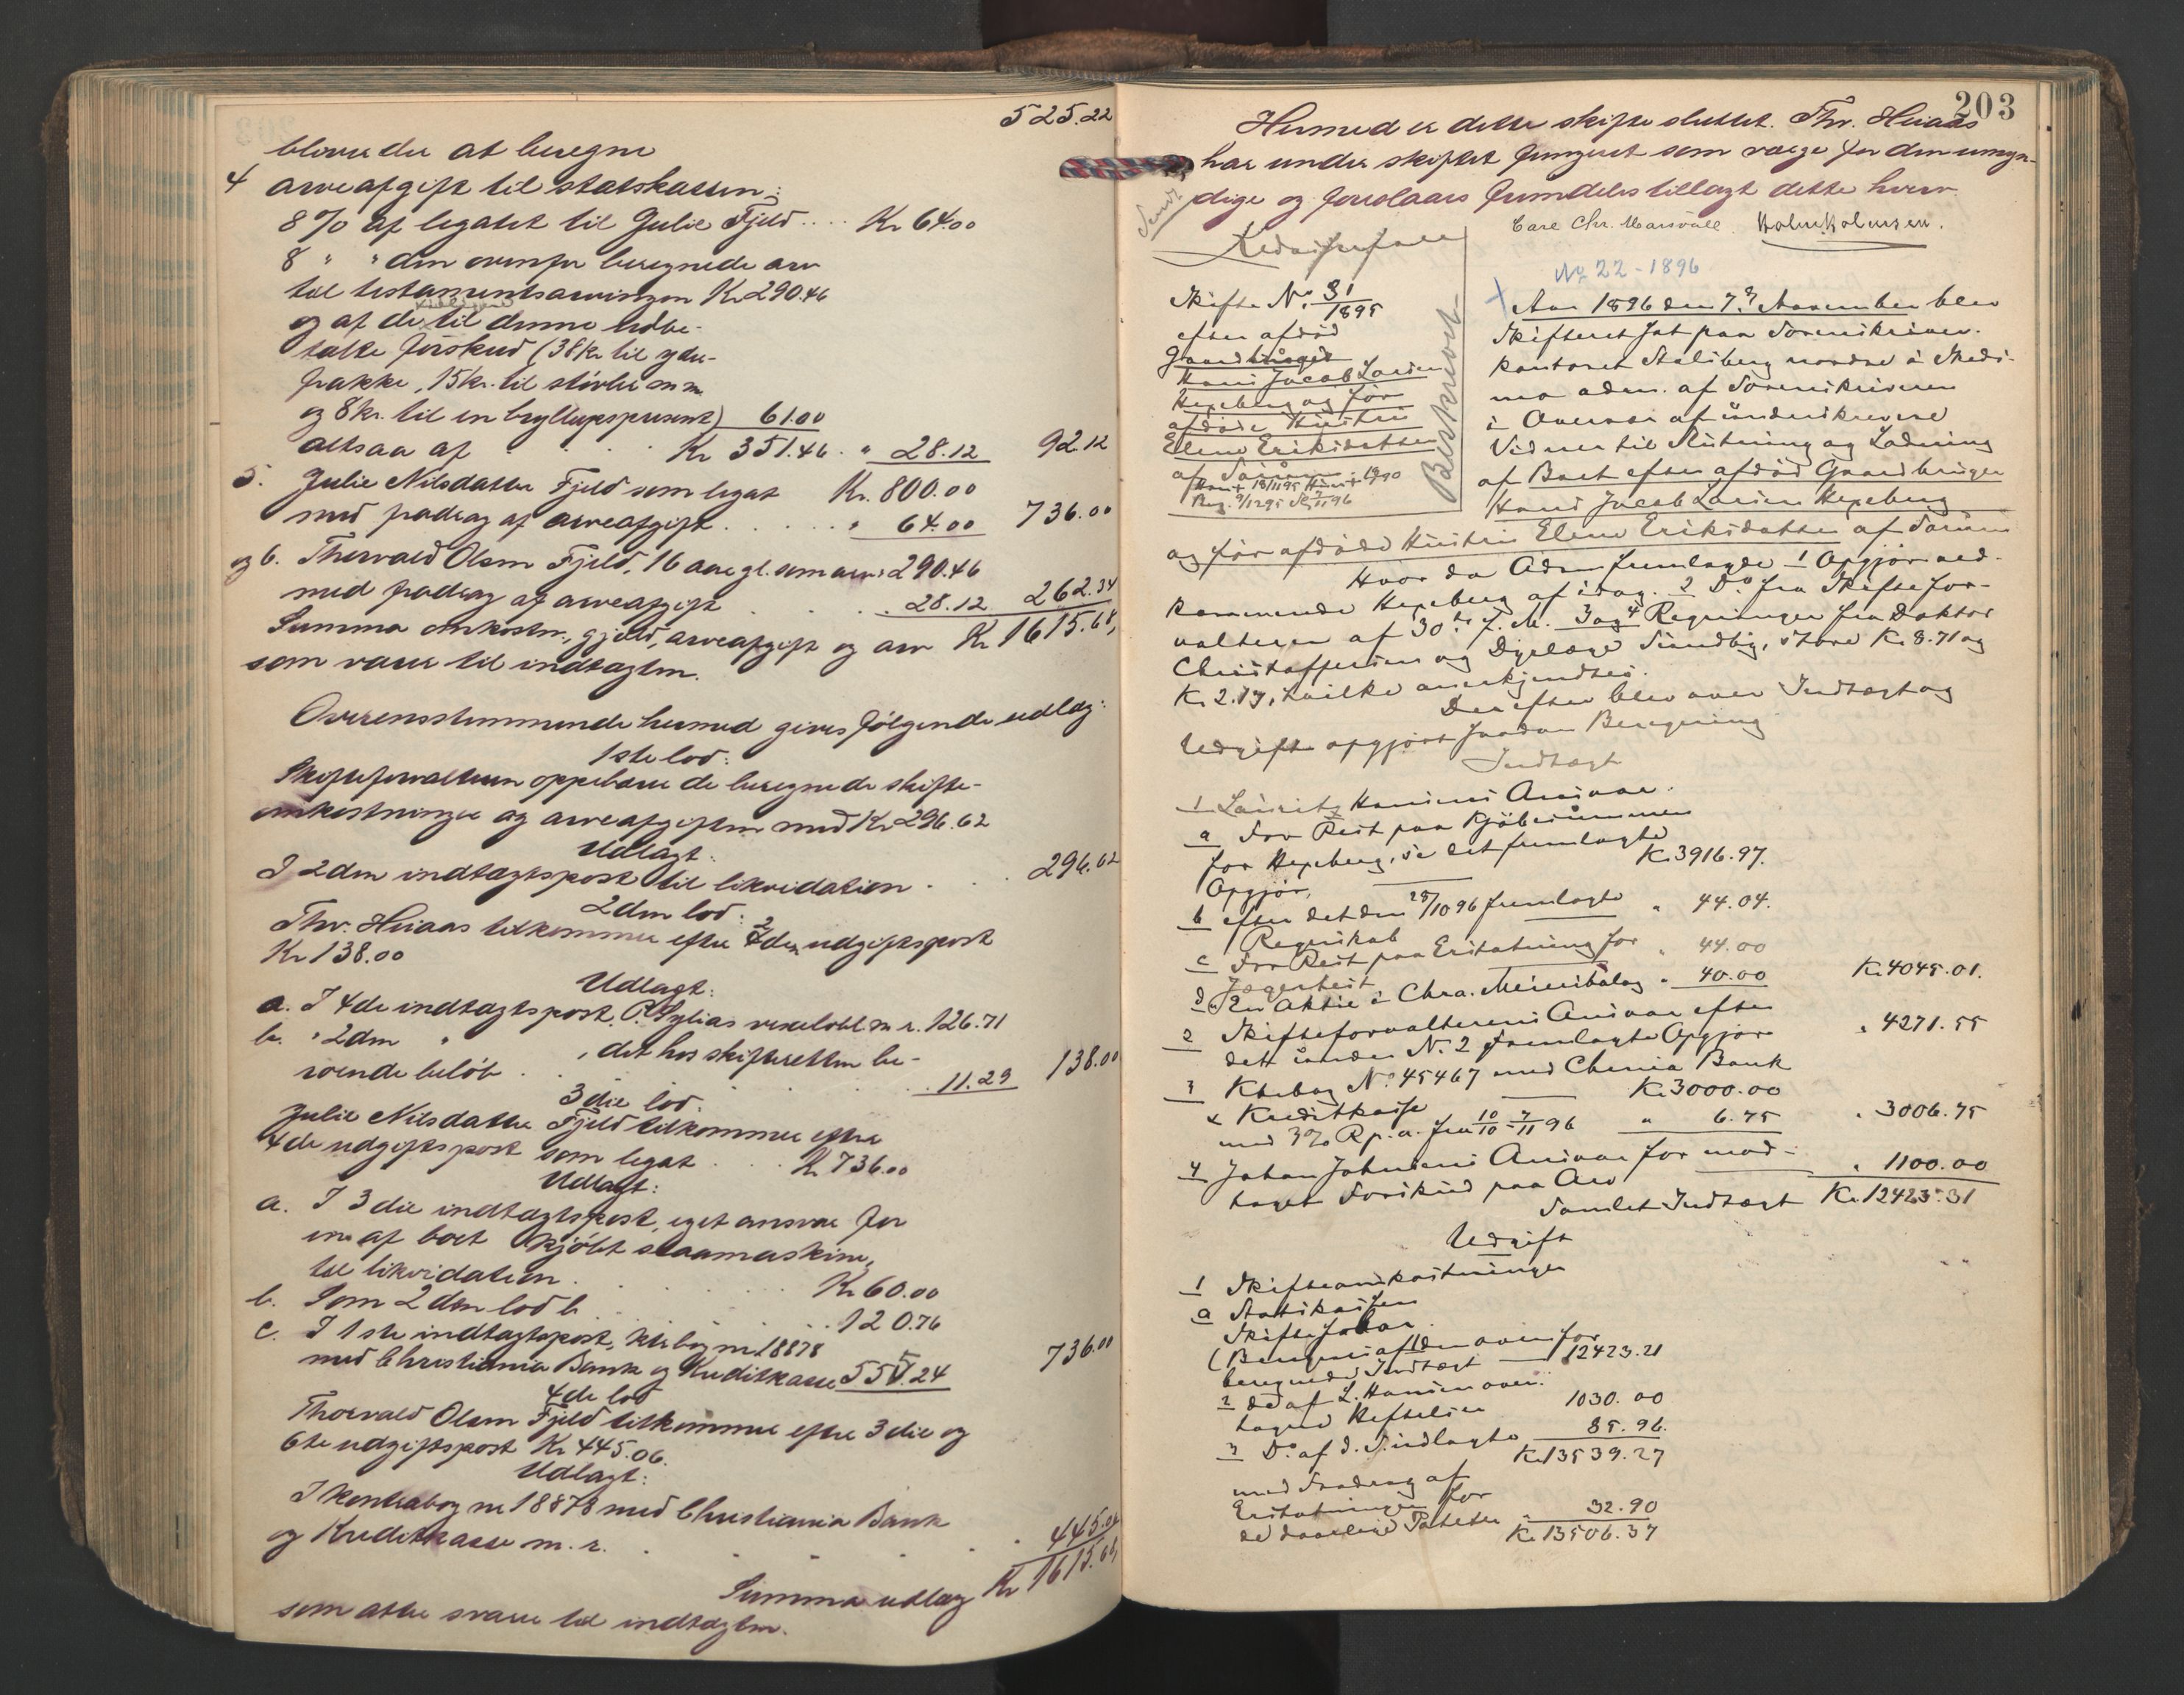 525.22
bliver der at beregne
4 arveafgift til statskassen:
8 % af legatet til Julie Fjeld .... Kr 64.00
8 " " den ovenfor beregnede arv
til testamentsarvingen Kr 290.46
og af de til denne udbe-
talte forskud (38 kr. til yder-
frakke, 15 kr. til støvler m m
og 8 kr. til en bryllupspresent) 61.00
altsaa af . . . Kr 351.46 . " 28.12 92.12
5. Julie Nilsdatter Fjeld som legat Kr. 800.00
med fradrag af arveafgift . . . . . " 64.00 736.00
og 6. Thorvald Olsen Fjeld, 16 aar gl. som arv: 290.46
med fradrag af arveafgift . . . . 28.12 262.34
Summa omkostn., gjæld, arveafgift og arv Kr 1615.68,
som svarer til indtægten.
Overensstemmende hermed gives følgende udlæg:
1ste lod:
Skifteforvalteren oppebærer de beregnede skifte-
omkostninger og arveafgiften med Kr 296.62
Udlagt:
I 2den indtægtspost til likvidation . . . 296.62
2den lod:
Thv. Huaas tilkommer efter 2den udgiftspost
Kr 138.00
Udlagt:
a. I 4de indtægtspost, vexelobl. m. r. 126.71
b. " 2den " , det hos skifteretten be-
roende beløb . . . . 11.29 138.00
3die lod:
Julie Nilsdatter Fjeld tilkommer efter
4de udgiftspost som legat . . . Kr 736.00
Udlagt:
a. I 3die indtægtspost, eget ansvar for
en af boet kjøbt slaamaskine,
til likvidation . . . . Kr 60.00
b. Som 2den lod b . . . . 120.76
c. I 1ste indtægtspost, ktrbog nr. 18878
med Christiania Bank og Kreditkasse 555.24 736.00
4de lod
Thorvald Olsen Fjeld tilkommer efter 3die og
6te udgiftspost Kr 445.06.
Udlagt:
I kontrabog nr 18878 med Christiania Bank
og Kreditkasse m. r. . . . . 445.06
Summa udlæg Kr 1615.68,
som atter svarer til indtægten.
203
Hermed er dette skifte sluttet. Thv. Huaas
har under skiftet fungeret som værge for den umyn-
dige og forelaaes fremdeles tillagt dette hverv.
Carl Chr. Marsvall. Holm Holmsen.
Skifte No. 31/1895
efter afdød
Gaardbruger
Hans Jacob Larsen
Hexeberg og før
afdøde Hustru
Elene Eriksdatter
af Sørum
Beskrevet
No 22 - 1896
Aar 1896 den 7de November blev
Skifteret sat paa Sorenskriver-
kontoret Stalsberg nordre i Skeds-
mo adm. af Sorenskriveren
i Overvær af underskrevne
Vidner til Slutning og Lodning
af Boet efter afdød Gaardbruger
Hans Jacob Larsen Hexeberg
og før afdøde Hustru Elene Eriksdatter af Sørum
Hvor da Adm. fremlagde 1 Opgjør ved-
kommende Hexeberg af idag. 2 Do. fra Skiftefor-
valteren af 30te f. M. 3 og 4 Regninger fra Doktor
Christoffersen og Dyrlæge Sundby, store Kr. 8.71 og
Kr. 2.13, hvilke anerkjendtes.
Derefter blev over Indtægt og
Udgift opgjort saadan Beregning
Indtægt
1 Lauritz Hansens Ansvar.
a For Rest paa Kjøbesummen
for Hexeberg, se det fremlagte
Opgjør, Kr. 3916.97.
b efter det den 28/10 96 fremlagte
Regnskab " 44.04.
c For Rest paa Erstatning for
Jægerheit " 44.00
d En Aktie i Chra. Meieribolag " 40.00 Kr. 4045.01.
2 Skifteforvalterens Ansvar efter
det under No. 2 fremlagte Opgjør " 4271.55
3 Ktrabog No. 45467 med Chrania Bank
& Kreditkasse Kr. 3000.00
med 3% R p. a. fra 10/10 - 7/11 96 " 6.75 " 3006.75
4 Johan Johnsens Ansvar for mod-
taget Forskud paa Arv " 1100.00
Samlet Indtægt Kr. 12423.31
Udgift
1 Skifteomkostninger
a Statskassen
Skiftesalær
(Beregnes af 1 den ovenfor
beregnede Indtægt 12423.21
2 do af L. Hansen over-
tagne Heftelser 1030.00
3 Do. af d. S. indlagte 85.96.
Kr. 13539.27
med Fradrag af
Erstatningen for
de daarlige Poteter " 32.90
Kr. 13506.37